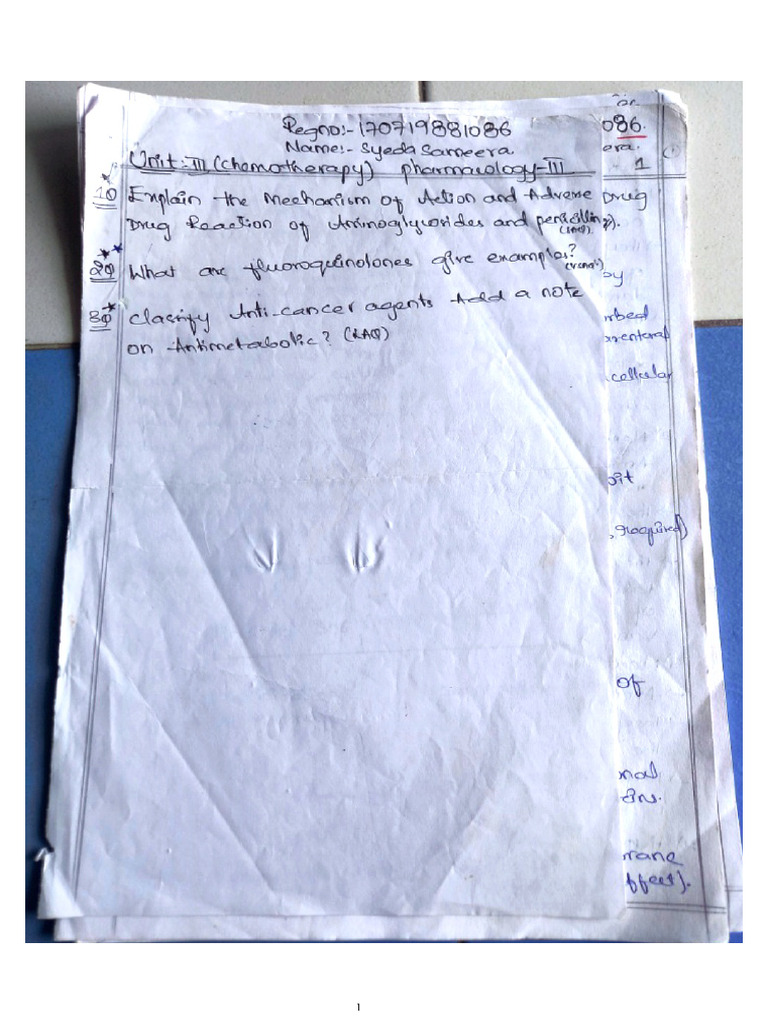 Regno:- 170719881086
Name:- Syeda Sameera.
Unit:-III (Chemotherapy) pharmacology-III
1Q Explain the Mechanism of Action and Adverse Drug
Drug Reaction of Aminoglycosides and penicillins?
(SAQ).
2Q What are fluoroquinolones give examples?
3Q Classify Anti-cancer agents Add a note
on Antimetabolic? (LAQ)
086.
era.
1
by
rbed
arenteral
cellular
oit
, required)
of
nal
rane
ffect).
1